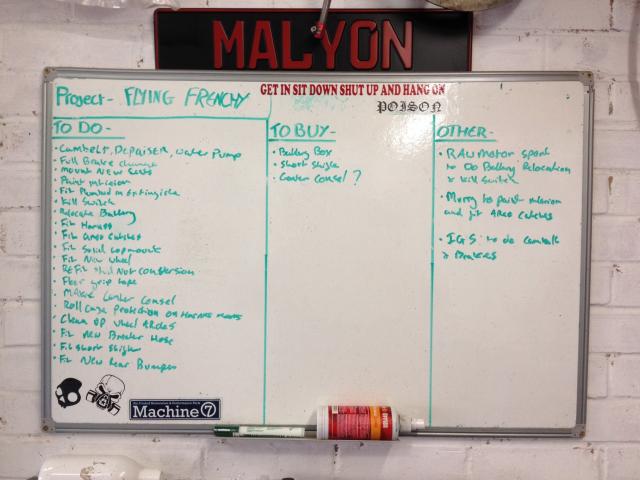 MALYON
GET IN SIT DOWN SHUT UP AND HANG ON
POISON
Project- FLYING FRENCHY
TO DO-
• Cambelt, Dephaiser, Water Pump
• Full Brake change
• Mount New Seats
• Paint interior
• Fit Plumbed in Extinguisher
• Kill Switch
• Relocate Battery
• Fit Harness
• Fit Areo Catches
• Fit Solid topmounts
• Fit New Wheel
• Refit Stud Nut conversion
• Floor grip tape
• Make Center Consel
• Roll cage Protection on
• Clean up wheel Arches
• Fit New Breather Hose
• Fit Short Shifter
• Fit New Rear Bumper
TO BUY-
• Battery Box
• Short Shifter
• Center Consel ?
OTHER-
• RAU Motor Sport
to Do Battery Relocation
& Kill Switch
• Murry to paint interion
and fit Areo Catches
• I.G.S. to do Cambelt
& Brakes
Machine 7